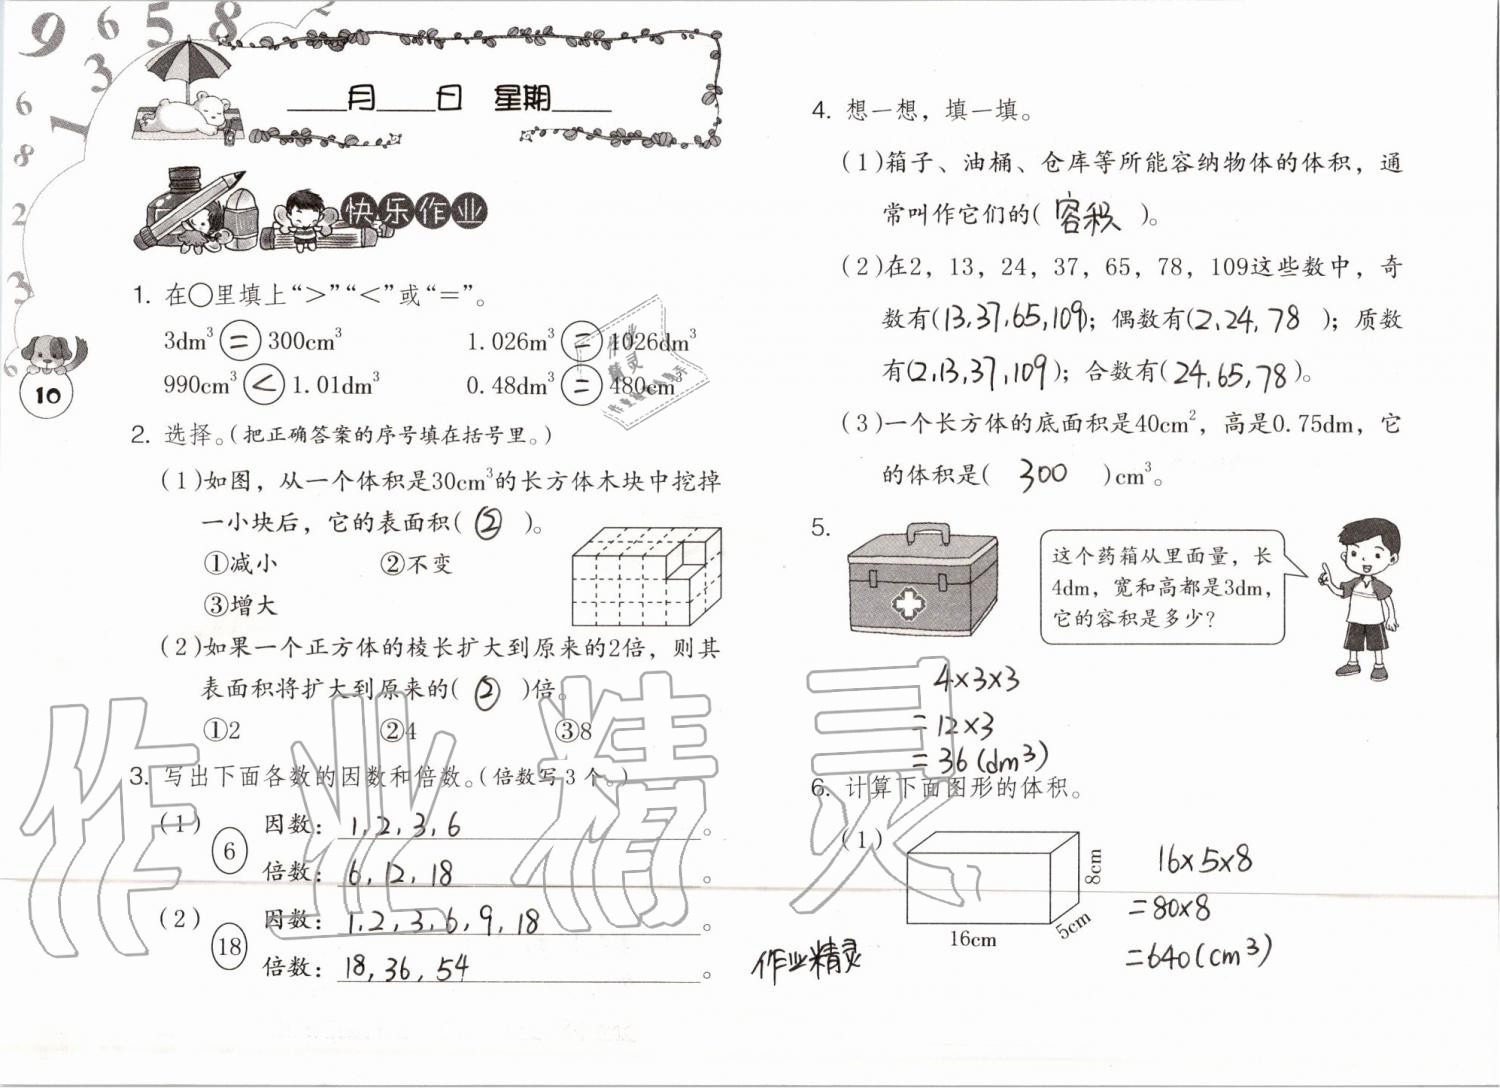 9 6 5 8 2
3
6 1
8
2
3
6
10
____月____日 星期____
快乐作业
1. 在○里填上“>”“<”或“=”。
3dm³ = 300cm³ 1.026m³ = 1026dm³
990cm³ < 1.01dm³ 0.48dm³ = 480cm
2. 选择。(把正确答案的序号填在括号里。)
(1)如图，从一个体积是30cm³的长方体木块中挖掉
一小块后，它的表面积( ② )。
①减小 ②不变
③增大
(2)如果一个正方体的棱长扩大到原来的2倍，则其
表面积将扩大到原来的( ② )倍。
①2 ②4 ③8
3. 写出下面各数的因数和倍数。(倍数写3个。)
(1) 6 因数：1,2,3,6。
倍数：6,12,18。
(2) 18 因数：1,2,3,6,9,18。
倍数：18,36,54。
4. 想一想，填一填。
(1)箱子、油桶、仓库等所能容纳物体的体积，通
常叫作它们的( 容积 )。
(2)在2，13，24，37，65，78，109这些数中，奇
数有(13,37,65,109)；偶数有(2,24,78 )；质数
有(2,13,37,109)；合数有(24,65,78)。
(3)一个长方体的底面积是40cm²，高是0.75dm，它
的体积是( 300 )cm³。
5.
这个药箱从里面量，长
4dm，宽和高都是3dm，
它的容积是多少？
4×3×3
=12×3
=36(dm³)
6. 计算下面图形的体积。
(1)
8cm
5cm
16cm
16×5×8
=80×8
=640(cm³)
作业精灵
作业精灵